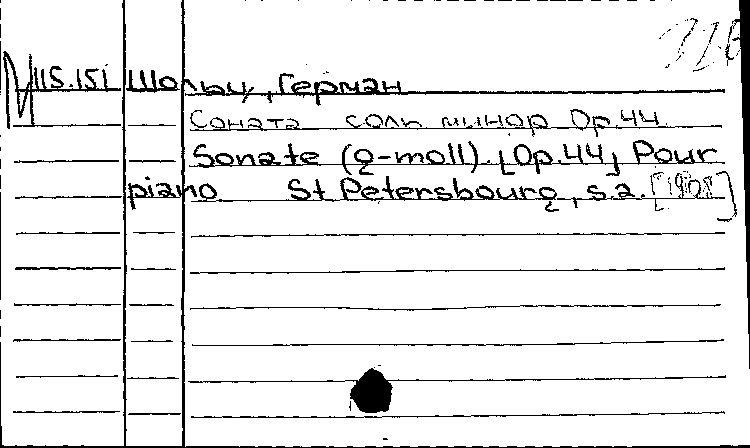 326
М 115.151 Шольц, Герман
Соната соль минор Op.44
Sonate (g-moll). [Op.44] Pour
piano St Petersbourg, s.a. [1908]